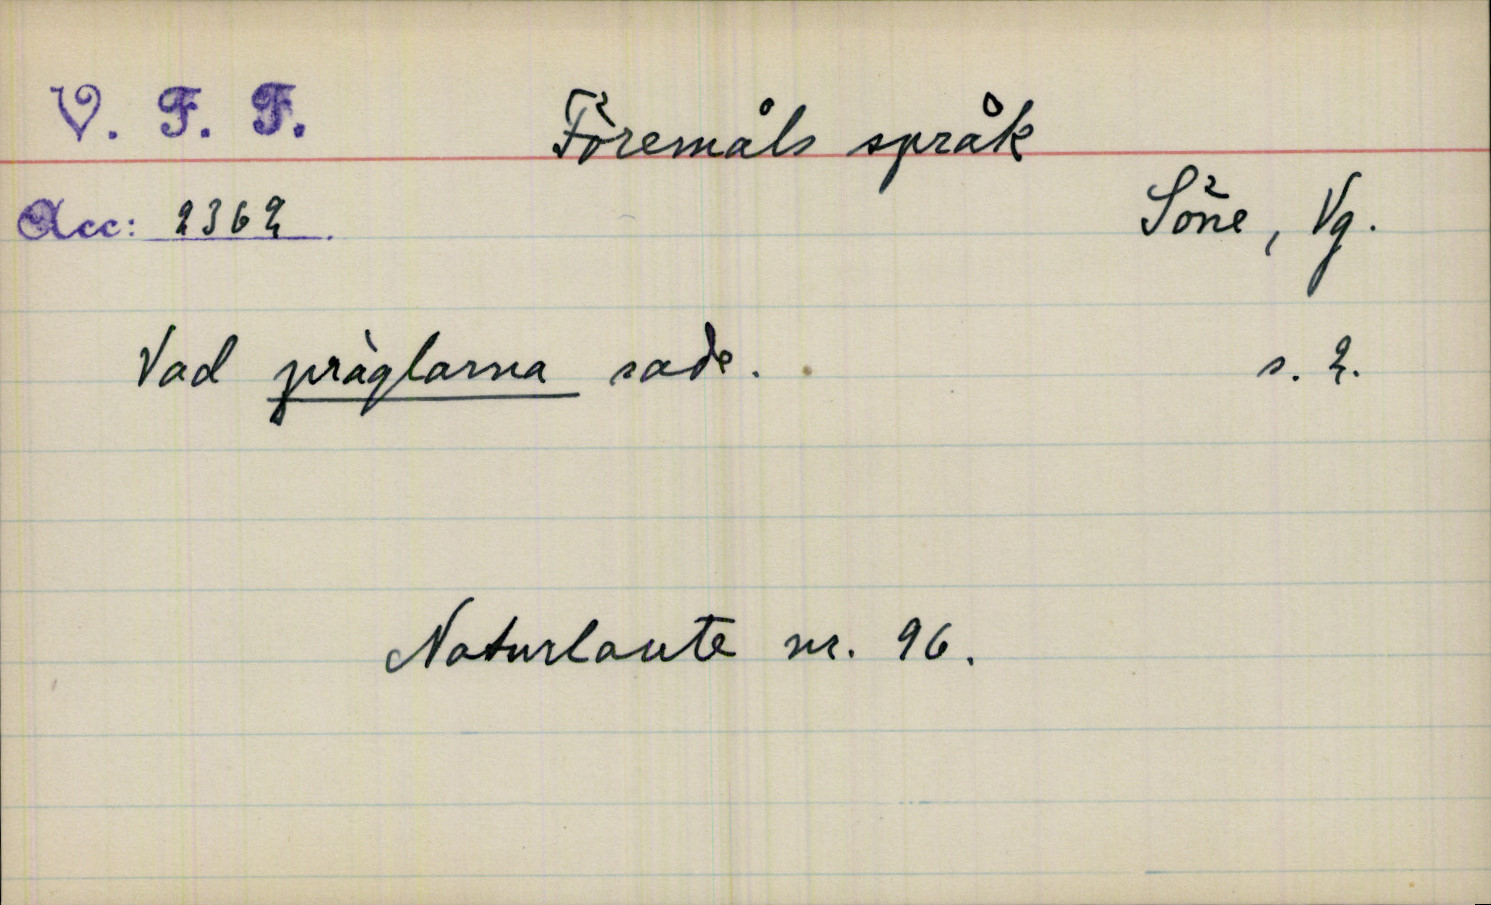 V. F. F.
Föremåls språk
Acc: 2362
Söne, Vg.
Vad präglarna sade. s. 2.
Naturlaute nr. 96.